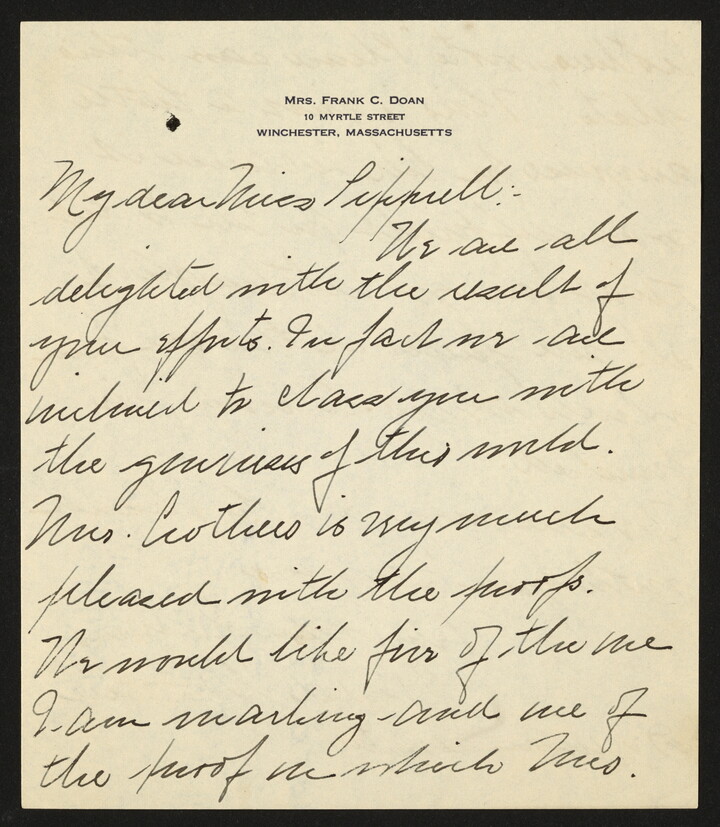 MRS. FRANK C. DOAN
10 MYRTLE STREET
WINCHESTER, MASSACHUSETTS
My dear Miss Pipprell:-
We are all
delighted with the result of
your efforts. In fact we are
inclined to class you with
the geniuses of this world.
Mrs. Crothers is very much
pleased with the proofs.
We would like five of the one
I am marking and one of
the proof in which Mrs.